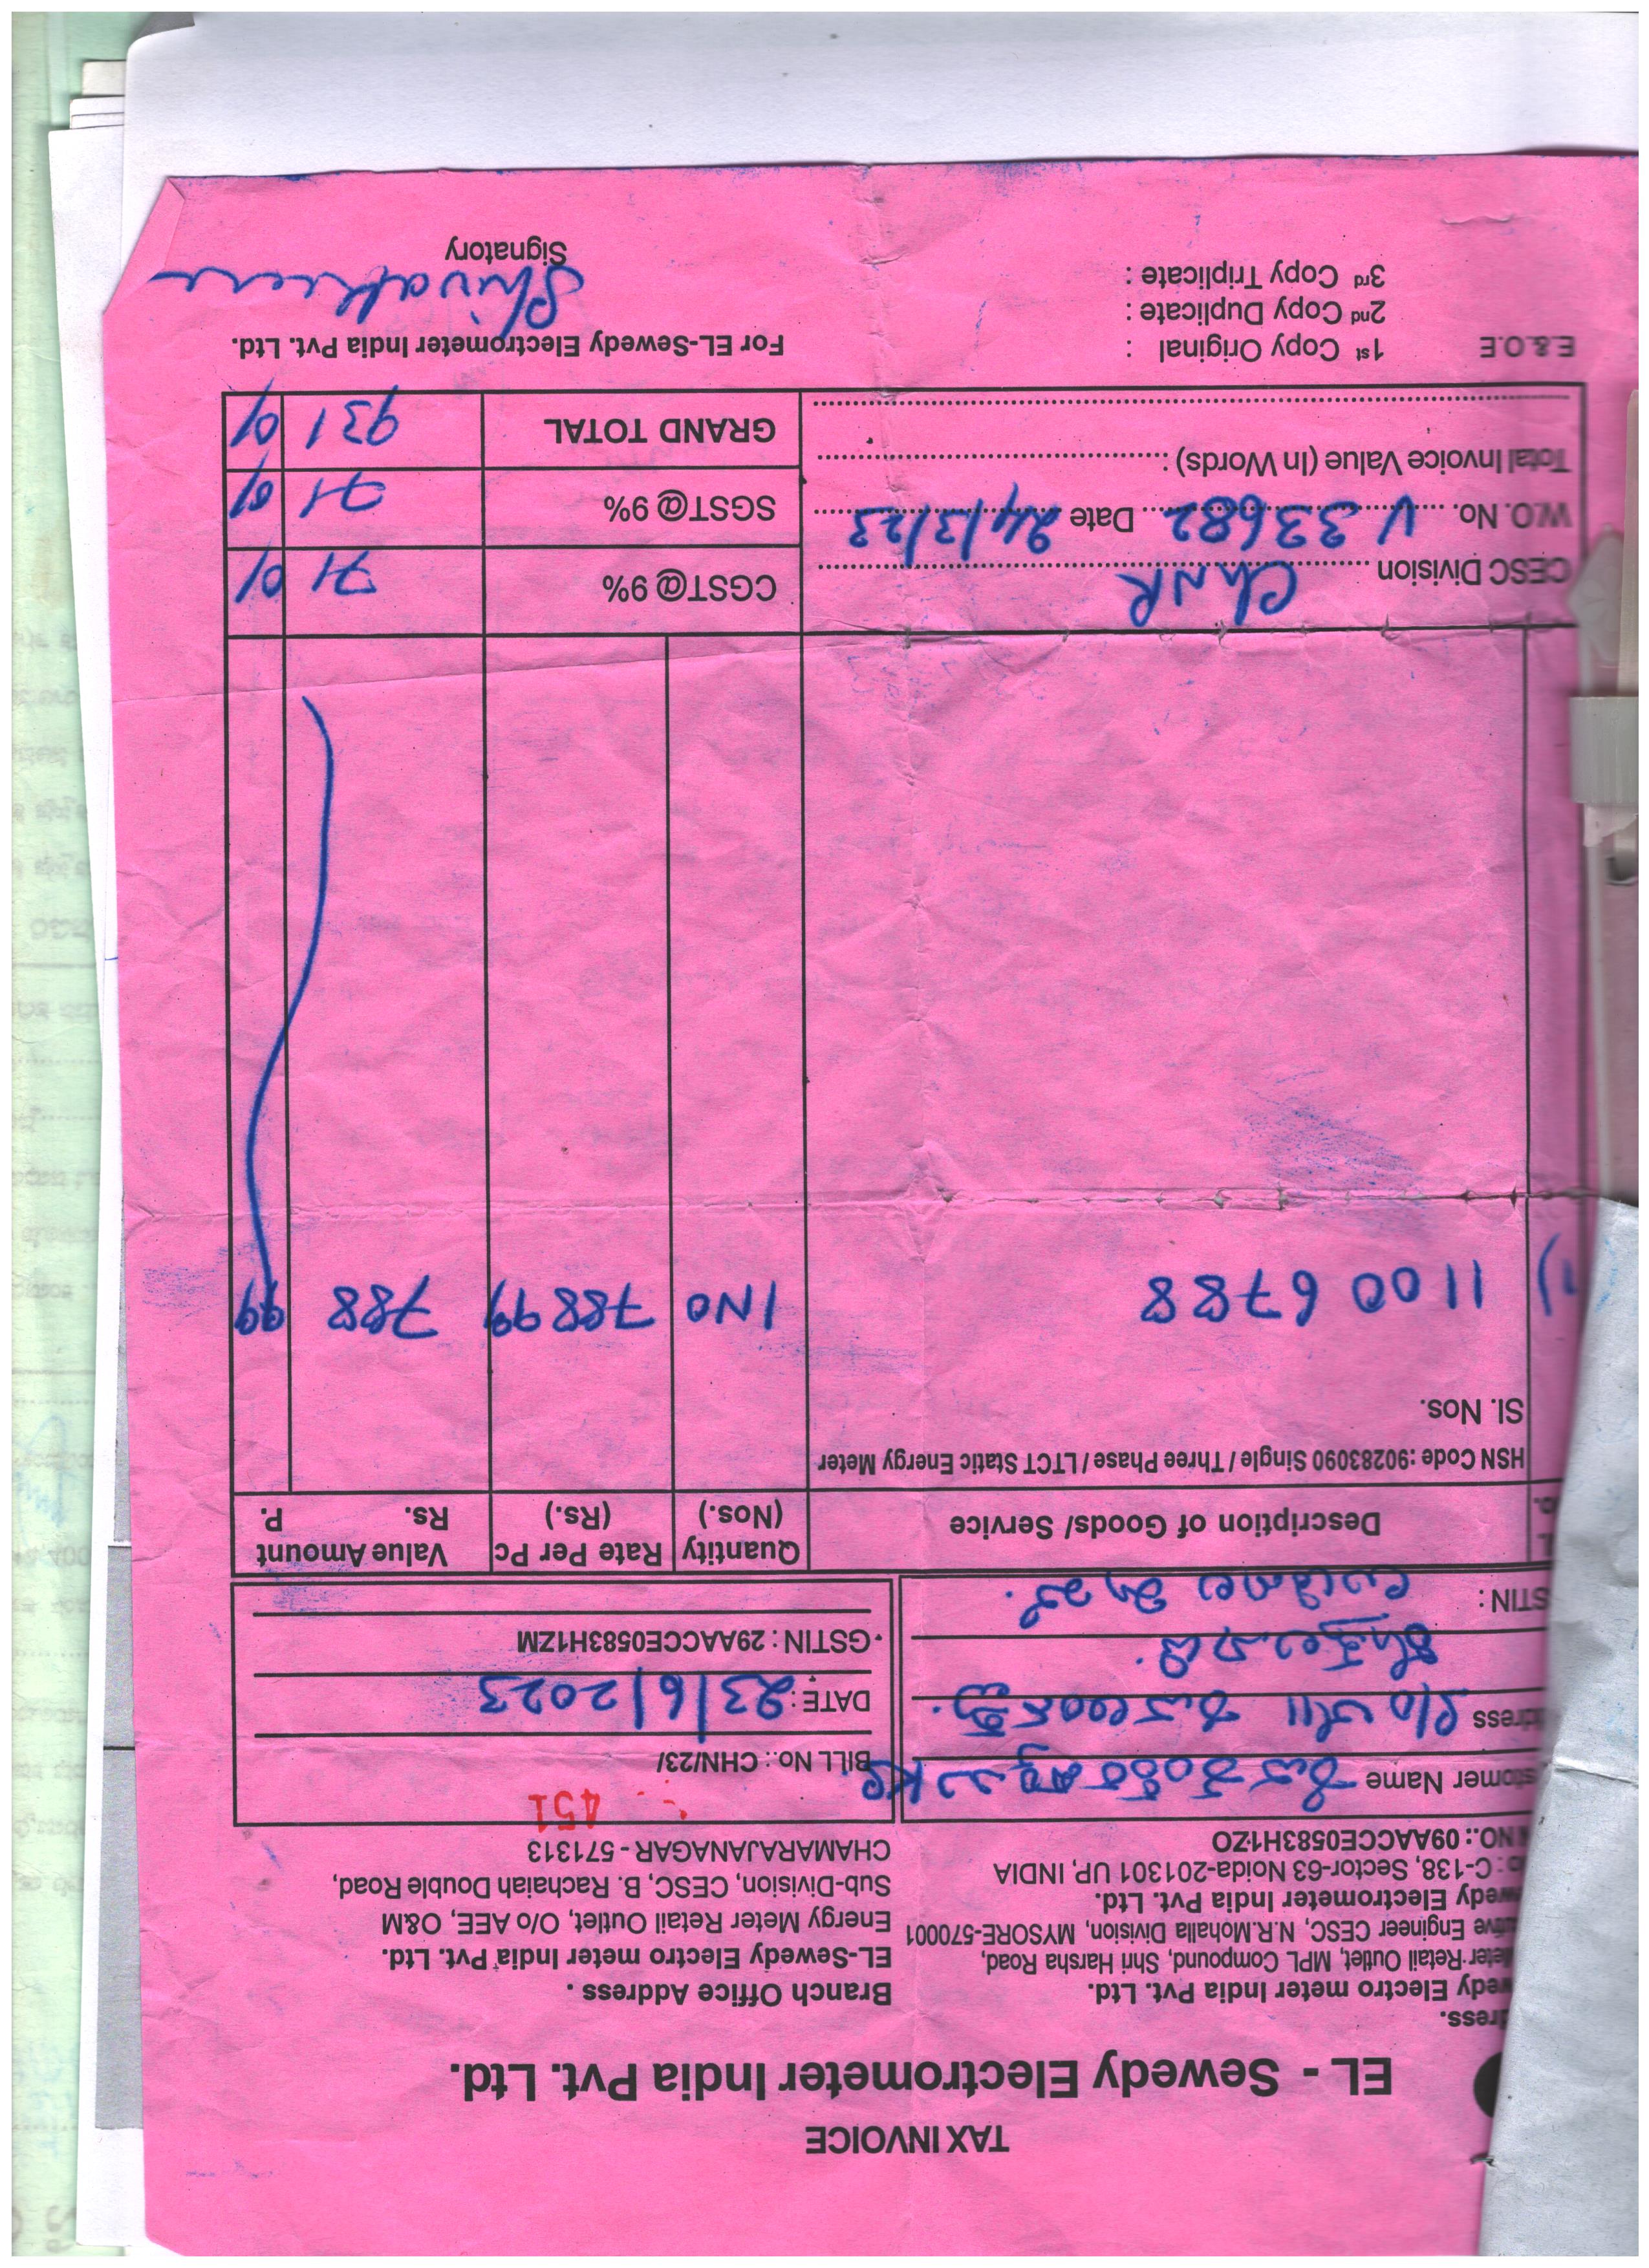 TAX INVOICE
EL - Sewedy Electrometer India Pvt. Ltd.
dress.
wedy Electro meter India Pvt. Ltd.
Meter Retail Outlet, MPL Compound, Shri Harsha Road,
utive Engineer CESC, N.R.Mohalla Division, MYSORE-570001
wedy Electrometer India Pvt. Ltd.
o: C-138, Sector-63 Noida-201301 UP, INDIA
NO.: 09AACCE0583H1ZO
Branch Office Address .
EL-Sewedy Electro meter India Pvt. Ltd.
Energy Meter Retail Outlet, O/o AEE, O&M
Sub-Division, CESC, B. Rachaiah Double Road,
CHAMARAJANAGAR - 571313
stomer Name
ddress
STIN :
451
BILL No.: CHN/23/
DATE : 23/6/2023
GSTIN : 29AACCE0583H1ZM
Description of Goods/ Service Quantity (Nos.) Rate Per Pc (Rs.) Value Amount Rs. P.
HSN Code : 90283090 Single / Three Phase / LTCT Static Energy Meter
Sl. Nos.
1) 1100 6788 1NO 788 99 788 99
CESC Division ChNR
W.O. No. V 33682 Date 24/3/23
Total Invoice Value (In Words) :
CGST@ 9% 71 01
SGST@ 9% 71 01
GRAND TOTAL 931 01
E.& O.E
1st Copy Original :
2nd Copy Duplicate :
3rd Copy Triplicate :
For EL-Sewedy Electrometer India Pvt. Ltd.
Signatory